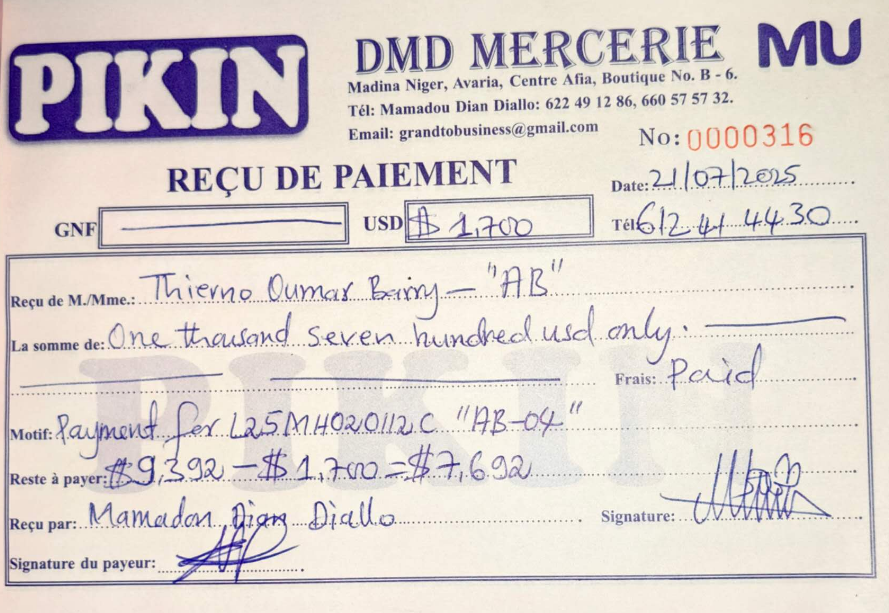 PIKIN
DMD MERCERIE
MU
Madina Niger, Avaria, Centre Afia, Boutique No. B - 6.
Tél: Mamadou Dian Diallo: 622 49 12 86, 660 57 57 32.
Email: grandtobusiness@gmail.com
No: 0000316
REÇU DE PAIEMENT
Date: 21/07/2025
GNF
USD $ 1,700
Tél 612 41 44 30
Reçu de M./Mme.: Thierno Oumar Barry - "AB"
La somme de: One thousand seven hundred usd only.
Frais: Paid
Motif: Payment for L25MH020112C "AB-04"
Reste à payer: $9,392 - $1,700 = $7,692
Reçu par: Mamadou Dian Diallo
Signature:
Signature du payeur:
PIKIN